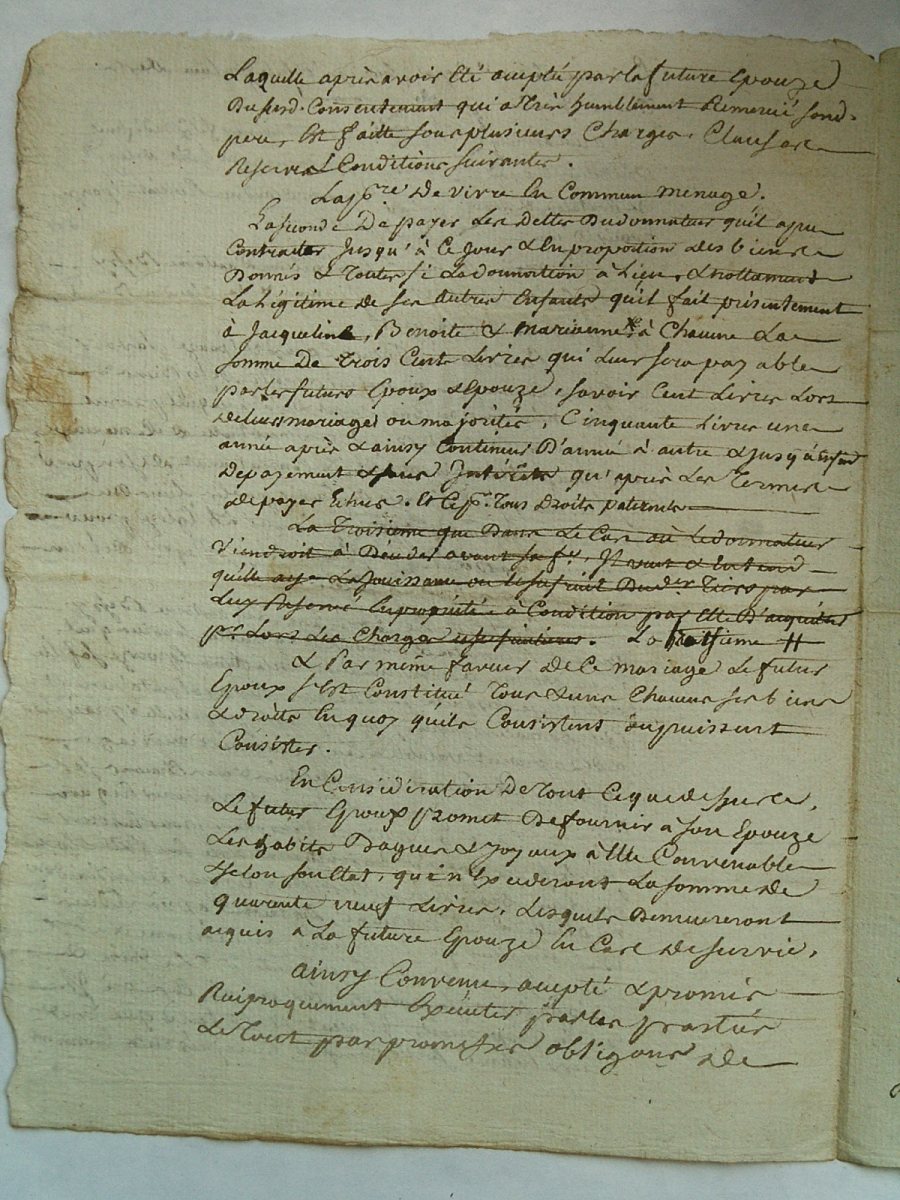 Laquelle après avoir été acceptée par la future Epouze
Dususd. Consentement qui a très humblement Remercié sond.
pere, Est faitte sous plusieurs Charges, Clauses
Reserves & Conditions suivantes.
La p.re De vivre En Commun menage.
La seconde De payer Les Dettes Du donnateur qu'il a pu
Contracter Jusqu'à Ce Jour & En proportion des biens
Donnés & Toutes si La donnation à Lieu, & nottament
La Légitime de ses autres Enfants qu'il fait présentement
à Jacqueline, Benoite & Marianne à Chacune La
somme De trois Cents Livres qui Leur sera payable
par les futurs Epoux & Epouze, savoir Cent Livres Lors
de leurs mariages ou majorités, Cinquante Livres une
année après & ainsy Continuer D'année à autre & Jusq'à
De payement & sans Intérêts qu'après Les Termes
de payer Echus. tous Droits paternels
La Troisieme que Dans Le Cas où Le donnateur
Viendroit à Decéder avant sa f.e, Il veut & Entend
qu'elle aye La Jouissance ou L'usufruit Du d.er Tiers par
Luy Reservé En propriété à Condition par Elle D'acquitter
p.r Lors Les Charges usufruitieres. La
& Par même faveur de Ce mariage Le futur
Epoux s'est Constitué Tous & uns Chacuns ses biens
& droits En quoy qu'ils Consistent ou puissent
Consister.
En Considération De tout Ce que dessus
Le futur Epoux promet De fournir à son Epouze
Les habits Bagues & Joyaux à Elle Convenables
selon son Etat, qui n'Excederont La somme de
quarante neuf Livres, Lesquels Demeureront
acquis à La future Epouze En Cas De survie.
ainsy Convenu, accepté & promis
Reciproquement Exécuter par les parties
Le tout par promesses obligons de